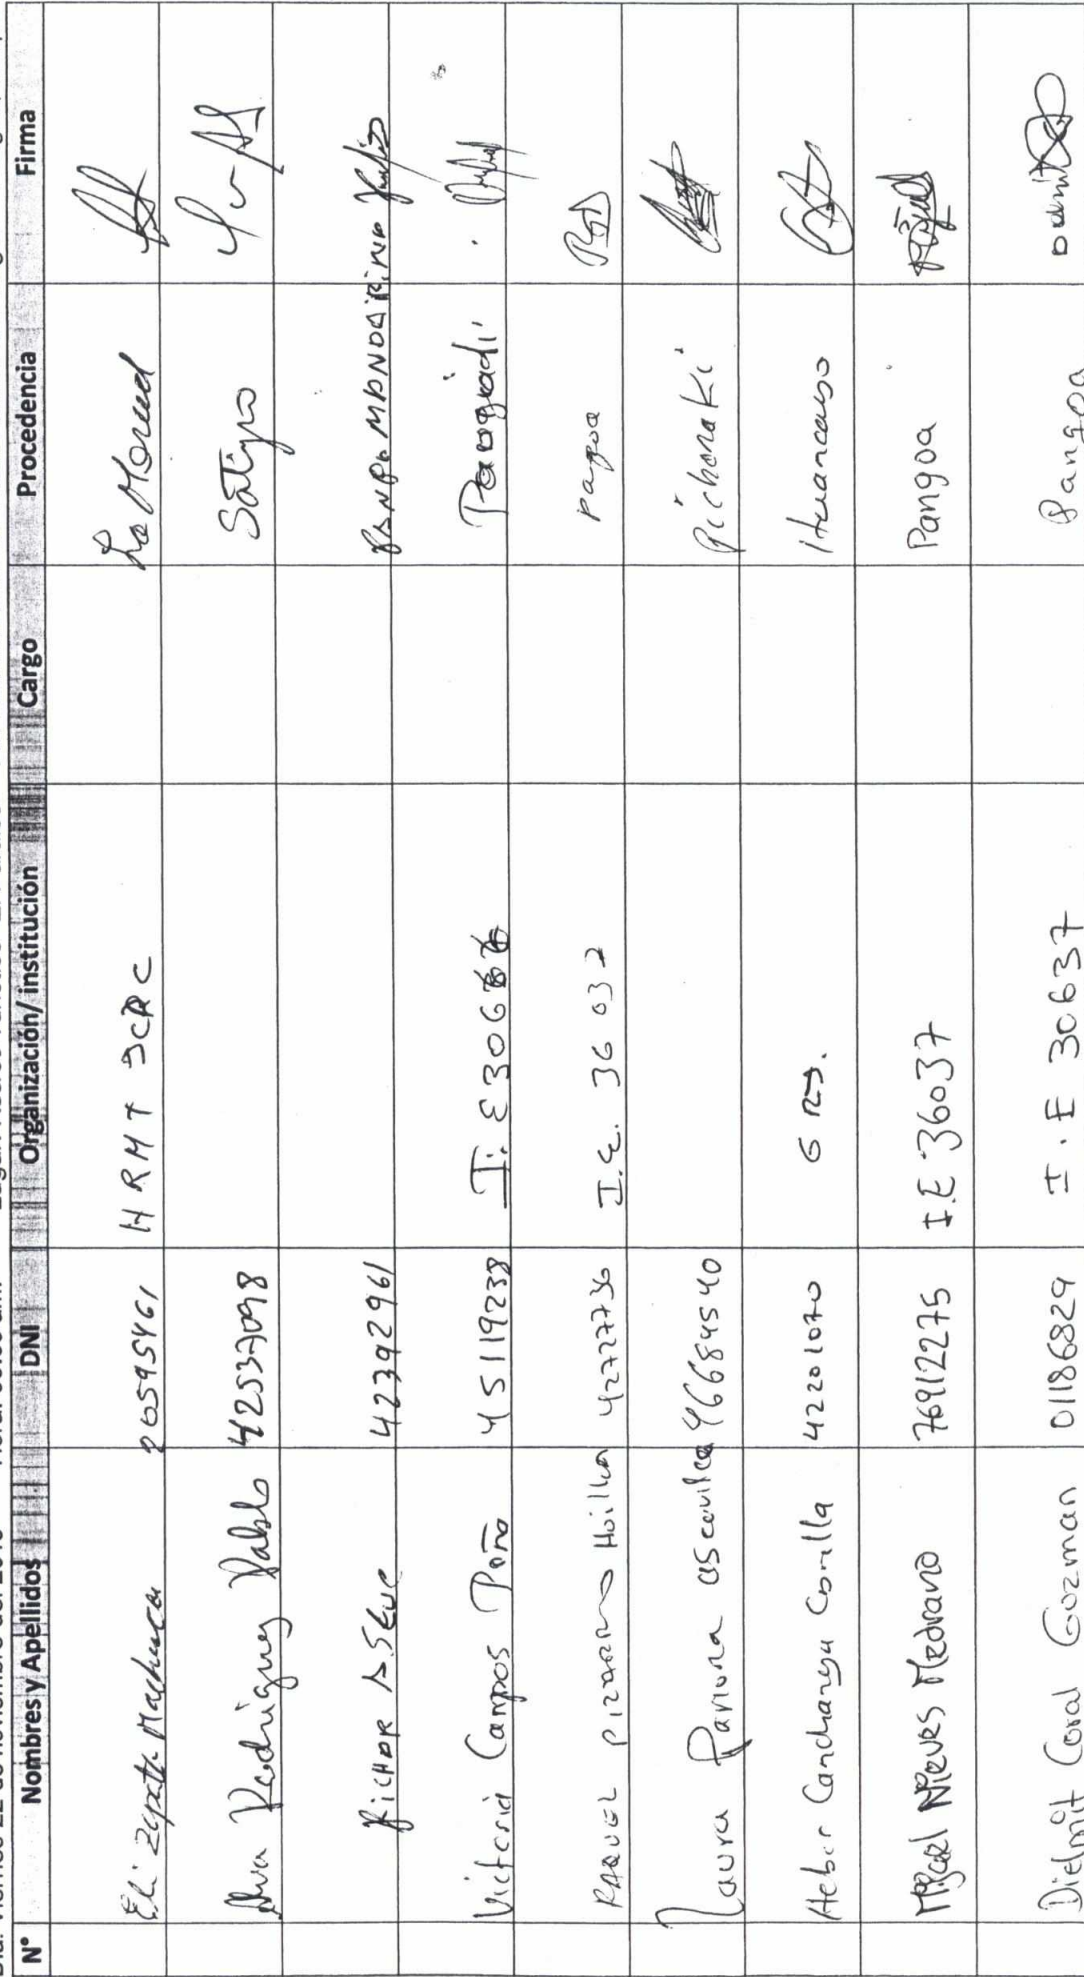 N° Nombres y Apellidos DNI Organización/ institución Cargo Procedencia Firma
Eli Zapata Machuca 20595461 HRMT JCRC La Merced
Rodriguez Pablo 42537098 Satipo
42392961
Victoria Campos Peña 45119238 I.E 30666
RAQUEL PIZARRO Huillca 42727736 I.E. 36032 Pangoa
Laura Pariona ascevilca 46684540 Pichanaki
Heber Canchanya Conilla 42201070 Huancayo
Miguel Nieves Medrano 76912275 I.E 36037 Pangoa
Dielmit Coral Gozman 01186829 I.E 30637 Pangoa